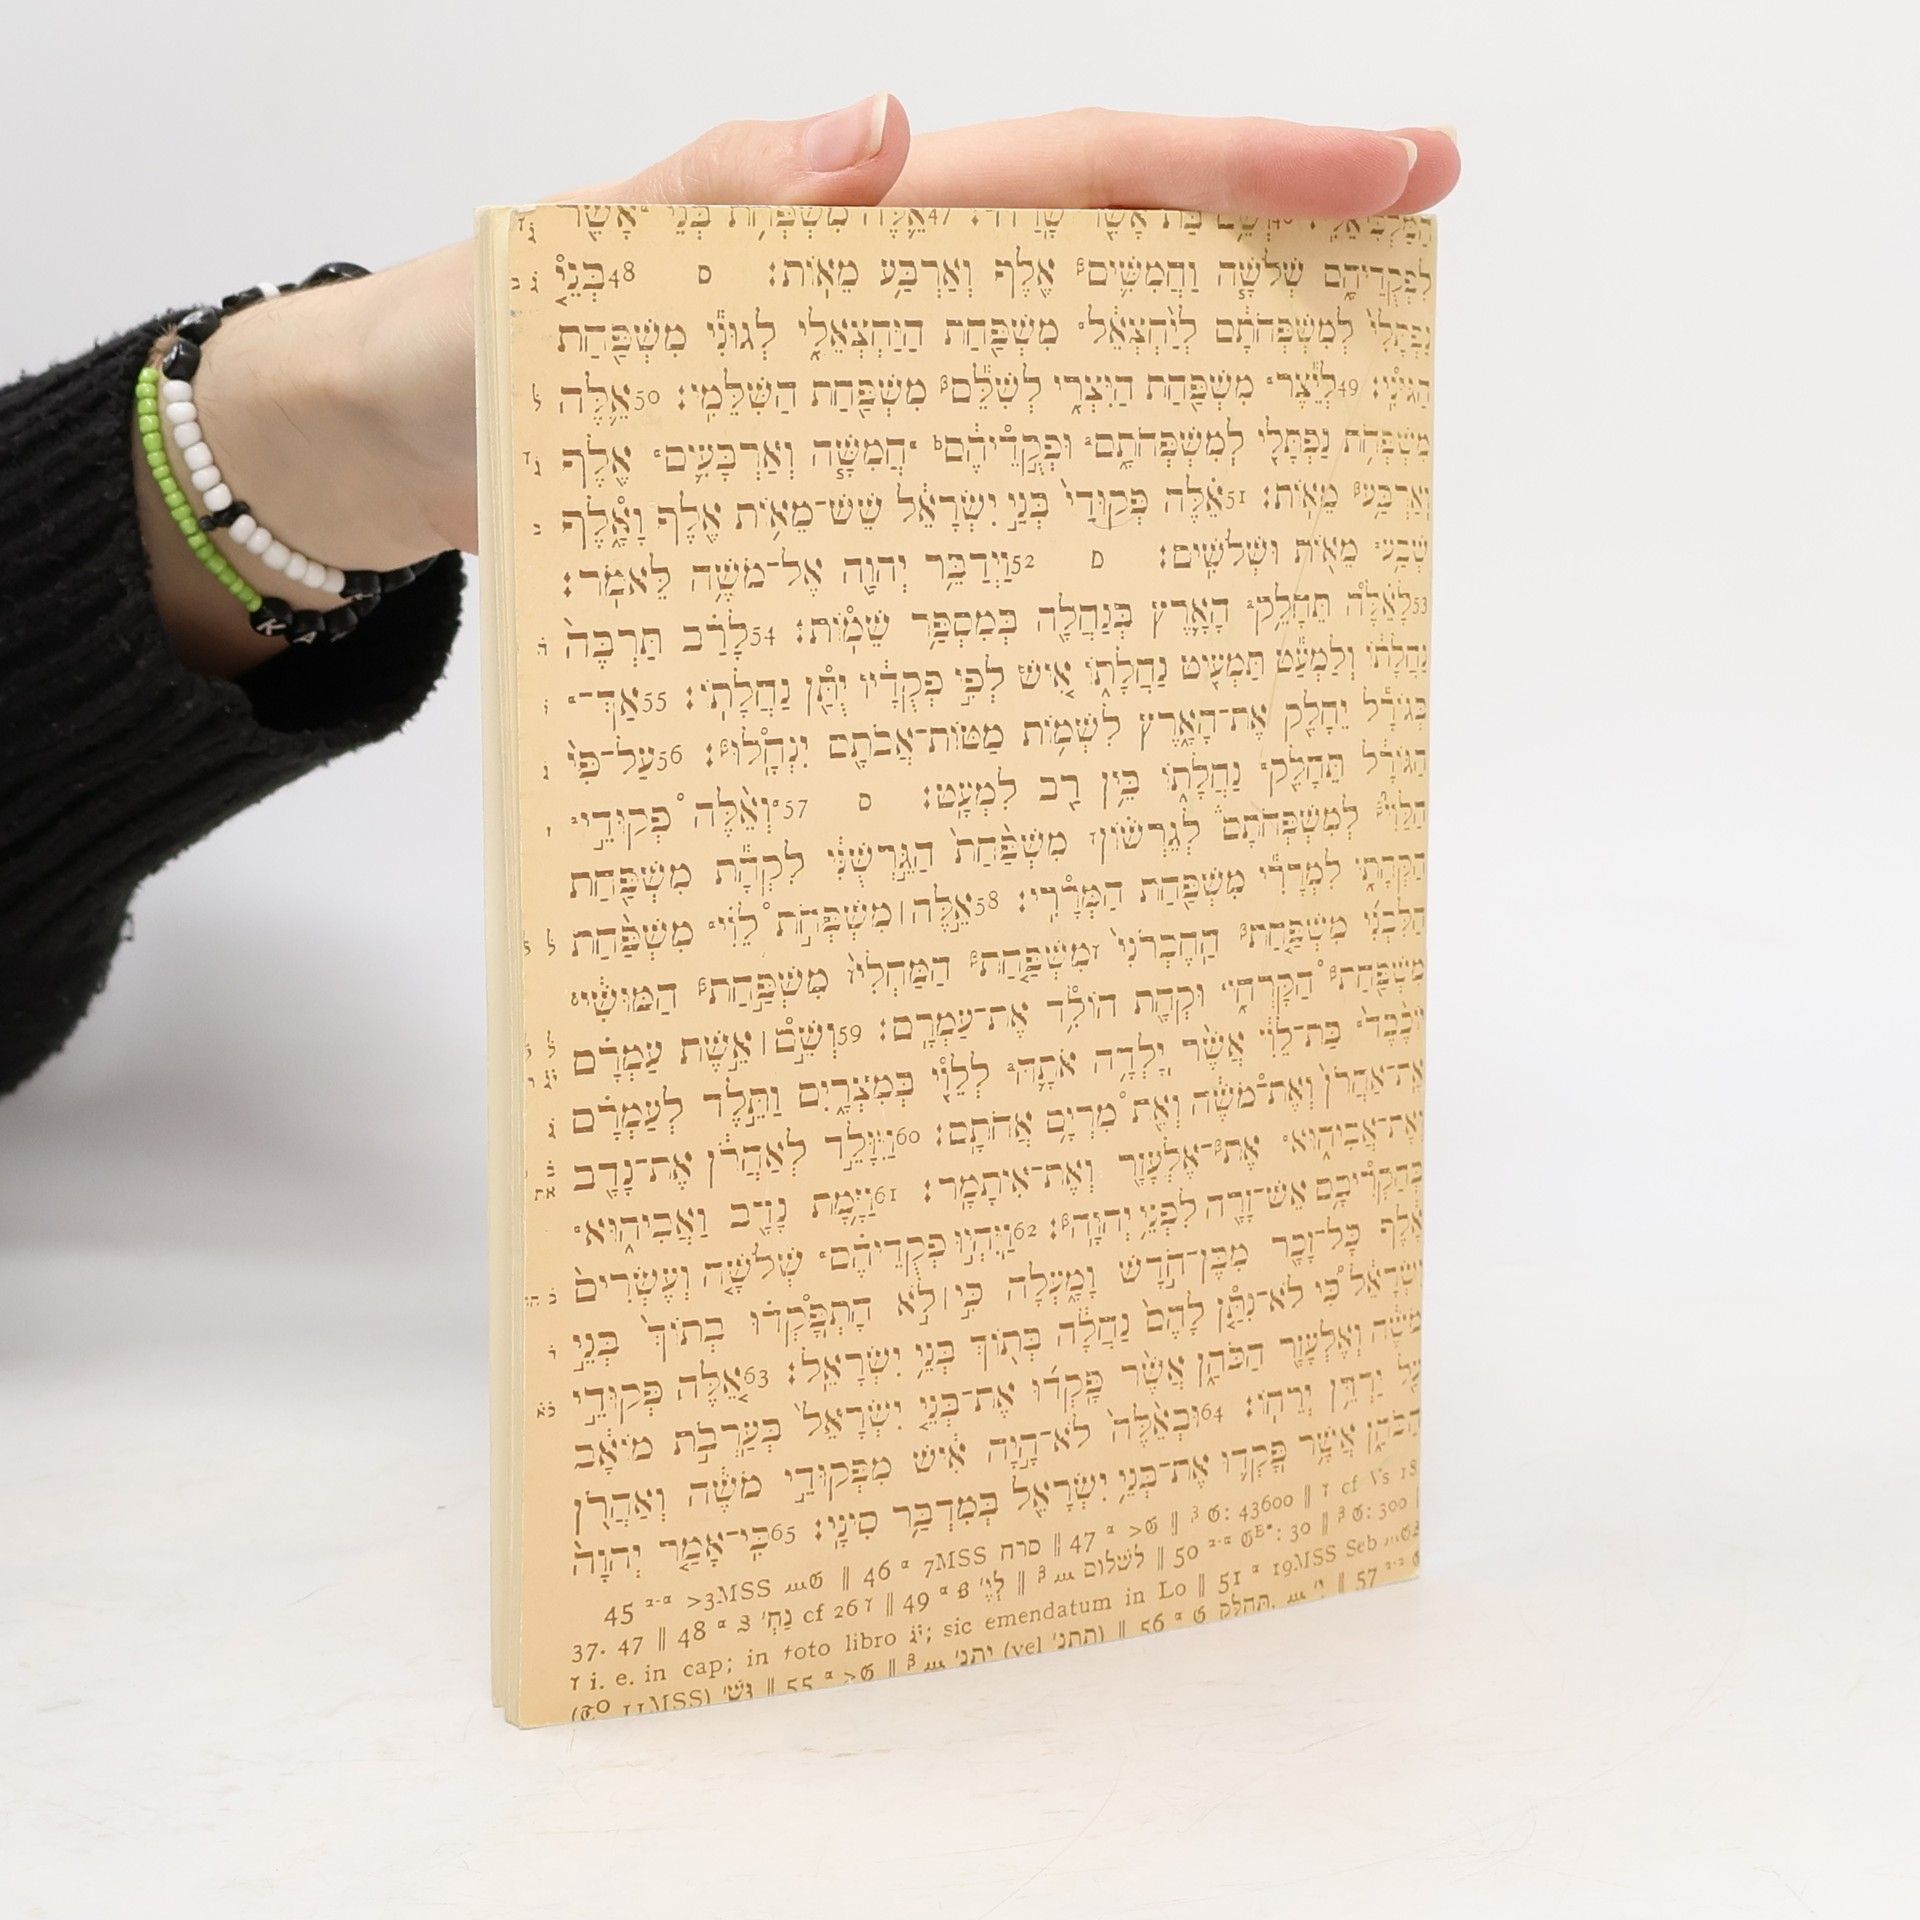 46וְשֵׁם בַּת אָשֵׁר שָׂרַח׃ 47אֵלֶּה מִשְׁפְּחֹת בְּנֵי אָשֵׁר
לִפְקֻדֵיהֶם שְׁלֹשָׁה וַחֲמִשִּׁים אֶלֶף וְאַרְבַּע מֵאוֹת׃ ס 48בְּנֵי
נַפְתָּלִי לְמִשְׁפְּחֹתָם לְיַחְצְאֵל מִשְׁפַּחַת הַיַּחְצְאֵלִי לְגוּנִי מִשְׁפַּחַת
הַגּוּנִי׃ 49לְיֵצֶר מִשְׁפַּחַת הַיִּצְרִי לְשִׁלֵּם מִשְׁפַּחַת הַשִּׁלֵּמִי׃ 50אֵלֶּה
מִשְׁפְּחֹת נַפְתָּלִי לְמִשְׁפְּחֹתָם וּפְקֻדֵיהֶם חֲמִשָּׁה וְאַרְבָּעִים אֶלֶף
וְאַרְבַּע מֵאוֹת׃ 51אֵלֶּה פְּקוּדֵי בְּנֵי יִשְׂרָאֵל שֵׁשׁ־מֵאוֹת אֶלֶף וָאָלֶף
שְׁבַע מֵאוֹת וּשְׁלֹשִׁים׃ ס 52וַיְדַבֵּר יְהוָה אֶל־מֹשֶׁה לֵּאמֹר׃
53לָאֵלֶּה תֵּחָלֵק הָאָרֶץ בְּנַחֲלָה בְּמִסְפַּר שֵׁמוֹת׃ 54לָרַב תַּרְבֶּה
נַחֲלָתוֹ וְלַמְעַט תַּמְעִיט נַחֲלָתוֹ אִישׁ לְפִי פְקֻדָיו יֻתַּן נַחֲלָתוֹ׃ 55אַךְ־
בְּגוֹרָל יֵחָלֵק אֶת־הָאָרֶץ לִשְׁמוֹת מַטּוֹת־אֲבֹתָם יִנְחָלוּ׃ 56עַל־פִּי
הַגּוֹרָל תֵּחָלֵק נַחֲלָתוֹ בֵּין רַב לִמְעָט׃ ס 57וְאֵלֶּה פְקוּדֵי
הַלֵּוִי לְמִשְׁפְּחֹתָם לְגֵרְשׁוֹן מִשְׁפַּחַת הַגֵּרְשֻׁנִּי לִקְהָת מִשְׁפַּחַת
הַקְּהָתִי לִמְרָרִי מִשְׁפַּחַת הַמְּרָרִי׃ 58אֵלֶּה׀ מִשְׁפְּחֹת לֵוִי מִשְׁפַּחַת
הַלִּבְנִי מִשְׁפַּחַת הַחֶבְרֹנִי מִשְׁפַּחַת הַמַּחְלִי מִשְׁפַּחַת הַמּוּשִׁי
מִשְׁפַּחַת הַקָּרְחִי וּקְהָת הוֹלִד אֶת־עַמְרָם׃ 59וְשֵׁם׀ אֵשֶׁת עַמְרָם
יוֹכֶבֶד בַּת־לֵוִי אֲשֶׁר יָלְדָה אֹתָהּ לְלֵוִי בְּמִצְרָיִם וַתֵּלֶד לְעַמְרָם
אֶת־אַהֲרֹן וְאֶת־מֹשֶׁה וְאֵת מִרְיָם אֲחֹתָם׃ 60וַיִּוָּלֵד לְאַהֲרֹן אֶת־נָדָב
וְאֶת־אֲבִיהוּא אֶת־אֶלְעָזָר וְאֶת־אִיתָמָר׃ 61וַיָּמָת נָדָב וַאֲבִיהוּא
בְּהַקְרִיבָם אֵשׁ־זָרָה לִפְנֵי יְהוָה׃ 62וַיִּהְיוּ פְקֻדֵיהֶם שְׁלֹשָׁה וְעֶשְׂרִים
אֶלֶף כָּל־זָכָר מִבֶּן־חֹדֶשׁ וָמָעְלָה כִּי׀ לֹא הָתְפָּקְדוּ בְּתוֹךְ בְּנֵי
יִשְׂרָאֵל כִּי לֹא־נִתַּן לָהֶם נַחֲלָה בְּתוֹךְ בְּנֵי יִשְׂרָאֵל׃ 63אֵלֶּה פְּקוּדֵי
מֹשֶׁה וְאֶלְעָזָר הַכֹּהֵן אֲשֶׁר פָּקְדוּ אֶת־בְּנֵי יִשְׂרָאֵל בְּעַרְבֹת מוֹאָב
עַל יַרְדֵּן יְרֵחוֹ׃ 64וּבְאֵלֶּה לֹא־הָיָה אִישׁ מִפְּקוּדֵי מֹשֶׁה וְאַהֲרֹן
הַכֹּהֵן אֲשֶׁר פָּקְדוּ אֶת־בְּנֵי יִשְׂרָאֵל בְּמִדְבַּר סִינָי׃ 65כִּי־אָמַר יְהוָה
45 ᵃ⁻ᵃ >3MSS 𝔊 ‖ 46 ᵃ 7MSS סרח ‖ 47 ᵃ >𝔊 ‖ ᵝ 𝔊: 43600 ‖ ᵞ cf Vs 18.
37. 47 ‖ 48 ᵃ נַחְ׳ cf 26ᵞ ‖ 49 ᵃ לְיֶ׳ ‖ ᵝ לשלום ‖ 50 ᵃ⁻ᵃ 𝔊ᴮ*: 30 ‖ ᵝ 𝔊: 300
ᵞ i. e. in cap; in toto libro; sic emendatum in Lo ‖ 51 ᵃ 19MSS Seb
(𝔗ᴼ 11MSS) וּשׁ׳ ‖ 55 ᵃ >𝔊 ‖ ᵝ יתנ׳ (vel תתנ׳) ‖ 56 ᵃ 𝔊 תחלק, ‖ 57 ᵃ⁻ᵃ